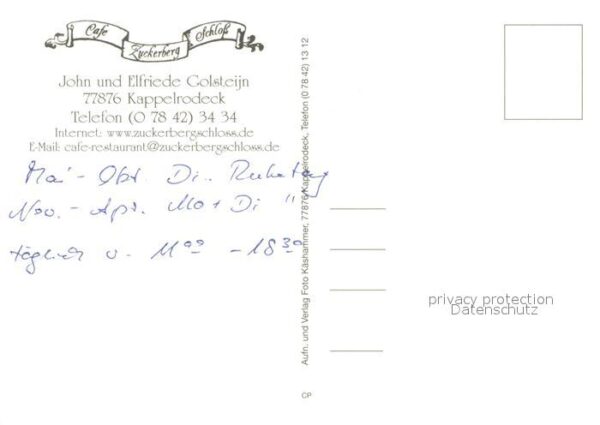 Cafe Zuckerberg Schloß
John und Elfriede Golsteijn
77876 Kappelrodeck
Telefon (0 78 42) 34 34
Internet: www.zuckerbergschloss.de
E-Mail: cafe-restaurant@zuckerbergschloss.de
Mai - Okt. Di.. Ruhetag
Nov. - Apr. Mo + Di "
täglich v. 11⁰⁰ - 18³⁰
Aufn. und Verlag Foto Käshammer, 77876 Kappelrodeck, Telefon (0 78 42) 13 12
privacy protection
Datenschutz
CP